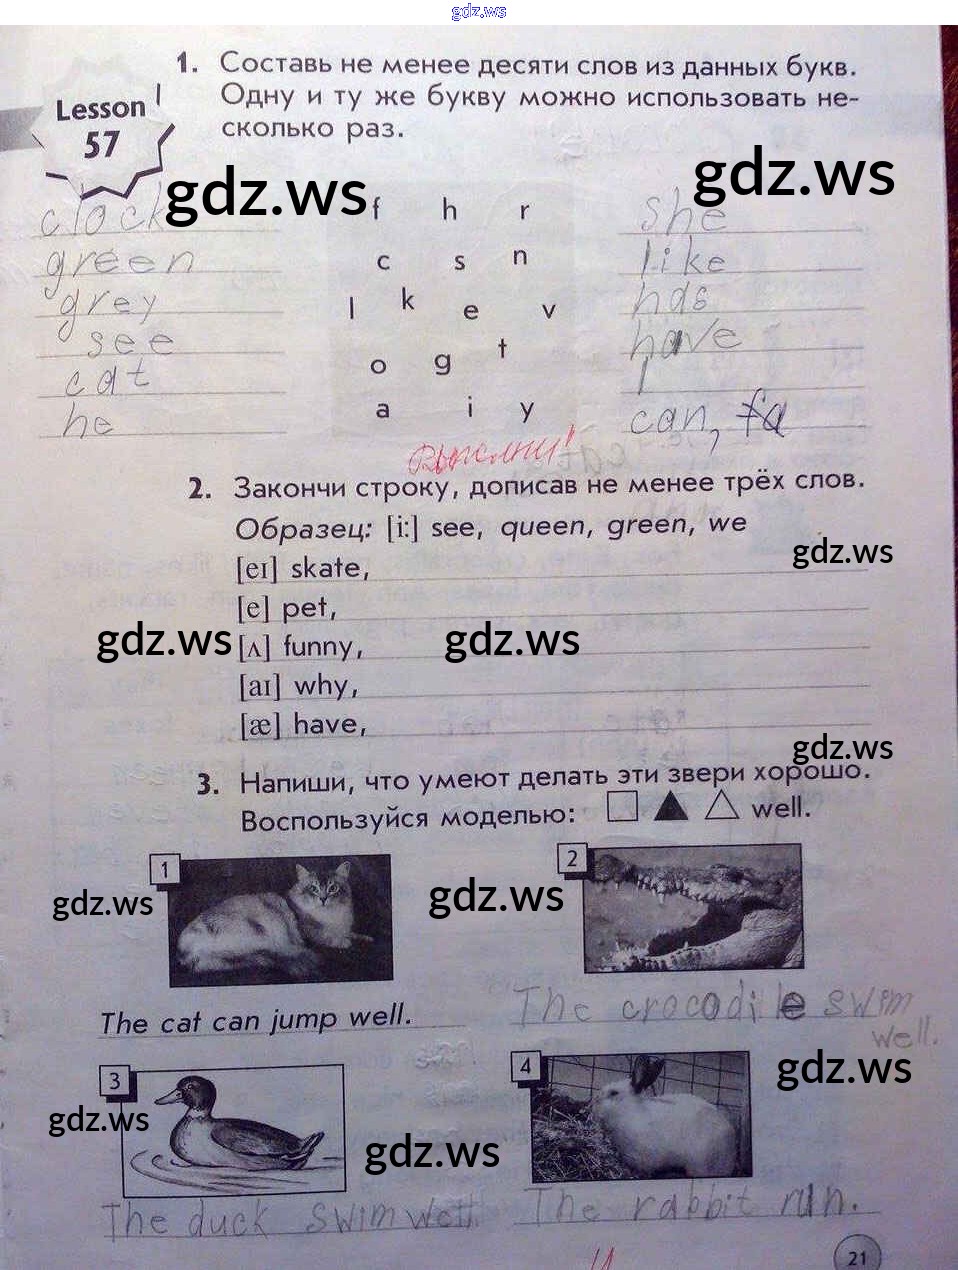 gdz.ws
1. Составь не менее десяти слов из данных букв.
Одну и ту же букву можно использовать не-
сколько раз.
Lesson
57
gdz.ws
gdz.ws
clock
f h r
she
green
c s n
like
grey
l k e v
has
see
o g t
have
cat
I
he
a i y
can, fa
Выполни!
cat
2. Закончи строку, дописав не менее трёх слов.
Образец: [i:] see, queen, green, we
gdz.ws
[eɪ] skate,
[e] pet,
gdz.ws
gdz.ws
[ʌ] funny,
[aɪ] why,
[æ] have,
gdz.ws
3. Напиши, что умеют делать эти звери хорошо.
Воспользуйся моделью: □ ▲ △ well.
1
2
gdz.ws
gdz.ws
The cat can jump well.
The crocodile swim
well.
3
4
gdz.ws
gdz.ws
gdz.ws
The duck swim well.
The rabbit run.
21